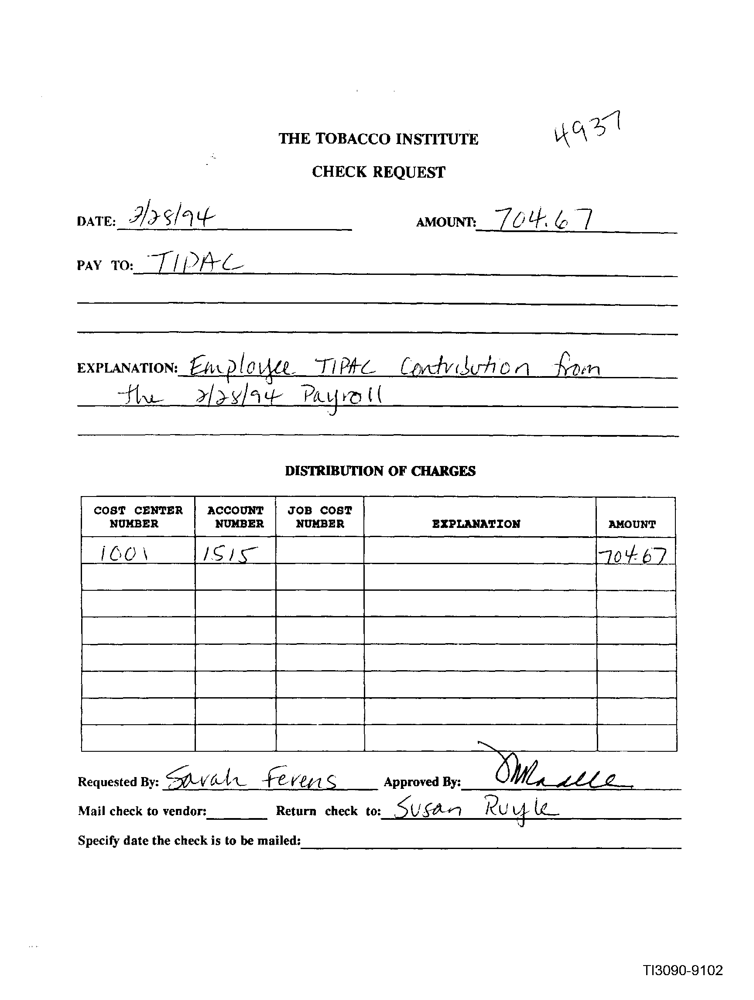 4937
THE TOBACCO INSTITUTE
CHECK REQUEST
DATE: 2/28/94 AMOUNT: 704.67
PAY TO: TIPAC
EXPLANATION: Employee TIPAC Contribution from
the 2/28/94 Payroll
DISTRIBUTION OF CHARGES
COST CENTER NUMBER ACCOUNT NUMBER JOB COST NUMBER EXPLANATION AMOUNT
1001 1515 704.67
Requested By: Sarah Ferens Approved By:
Mail check to vendor: Return check to: Susan Ruyle
Specify date the check is to be mailed:
TI3090-9102